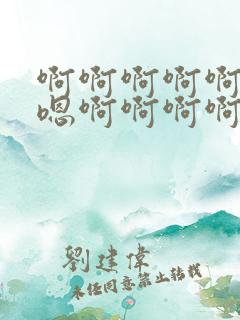 啊啊啊啊啊
嗯啊啊啊啊
劉建偉
未经同意禁止转载